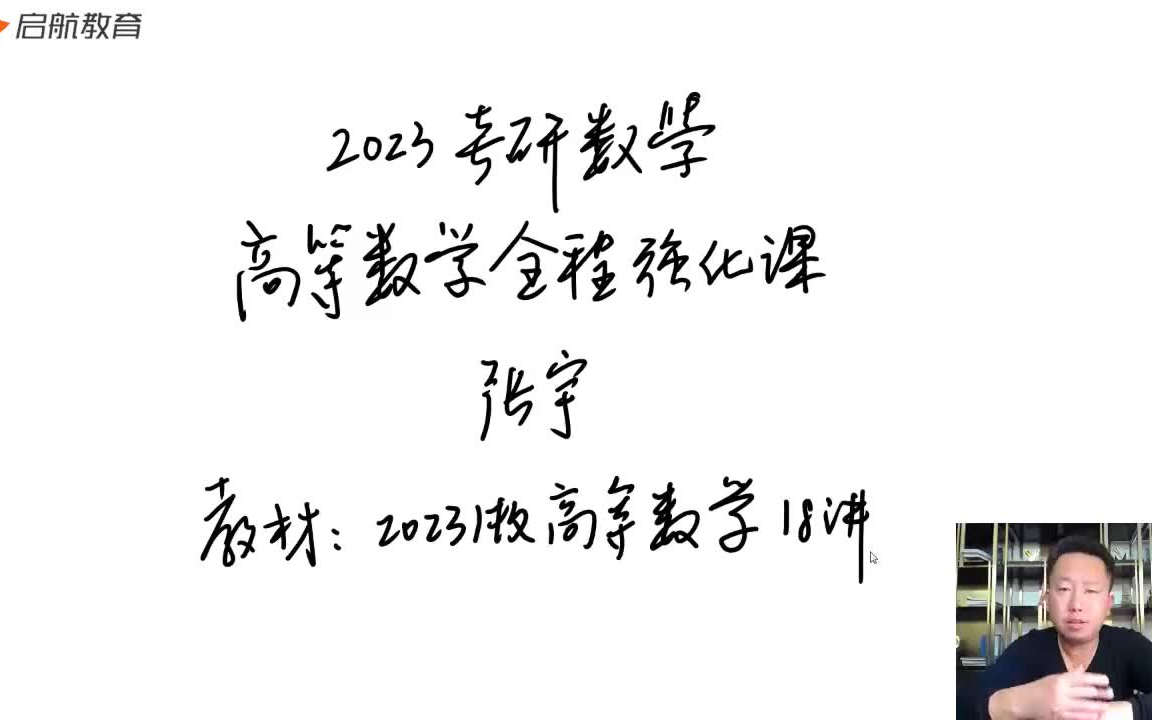 启航教育
2023考研数学
高等数学全程强化课
张宇
教材：2023版高等数学18讲